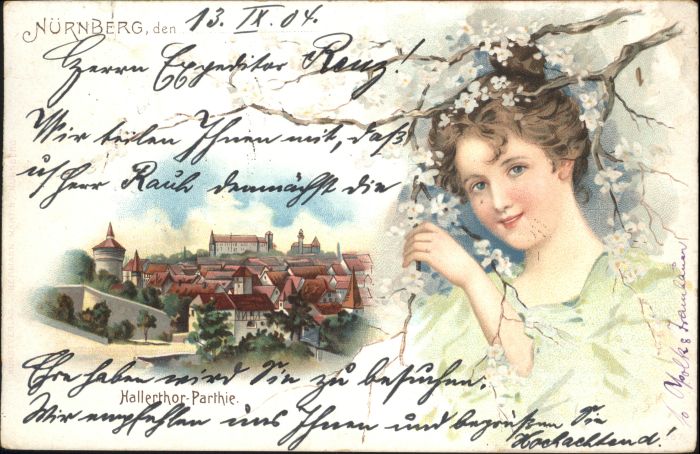 NÜRNBERG, den 13. IX. 04.
Herrn Expeditor Renz!
Wir teilen Ihnen mit, daß
u/ Herr Rauh demnächst die
Ehre haben wird Sie zu besuchen.
Hallerthor-Parthie.
Wir empfehlen uns Ihnen und begrüßen Sie
Hochachtend!